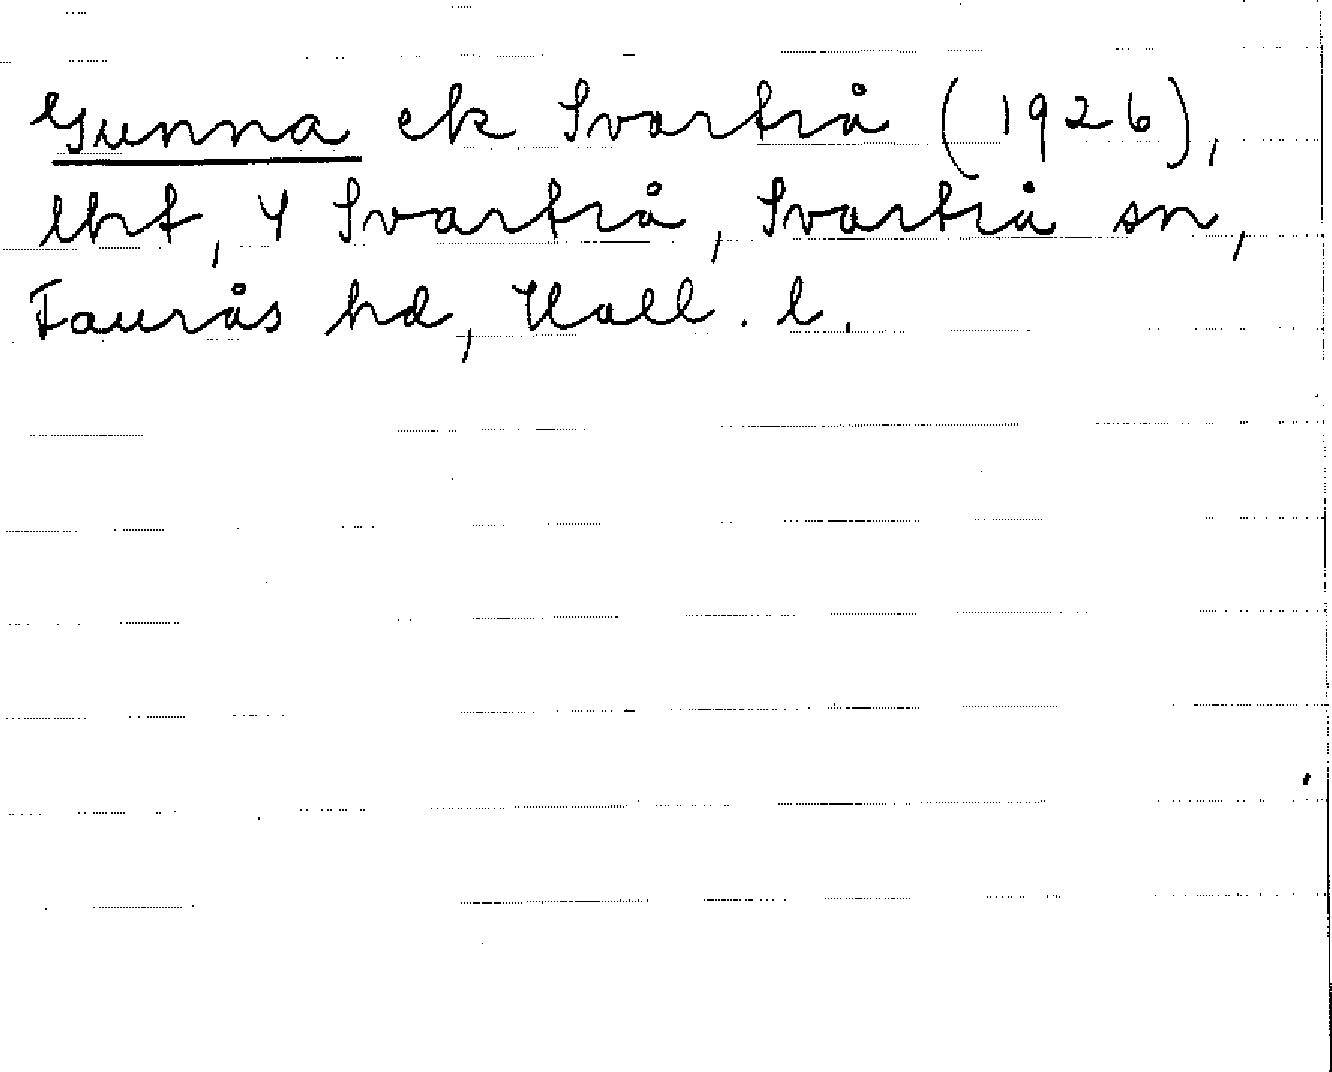 Gunna ek Svartrå (1926),
lht, 4 Svartrå, Svartrå sn,
Faurås hd, Hall. l.